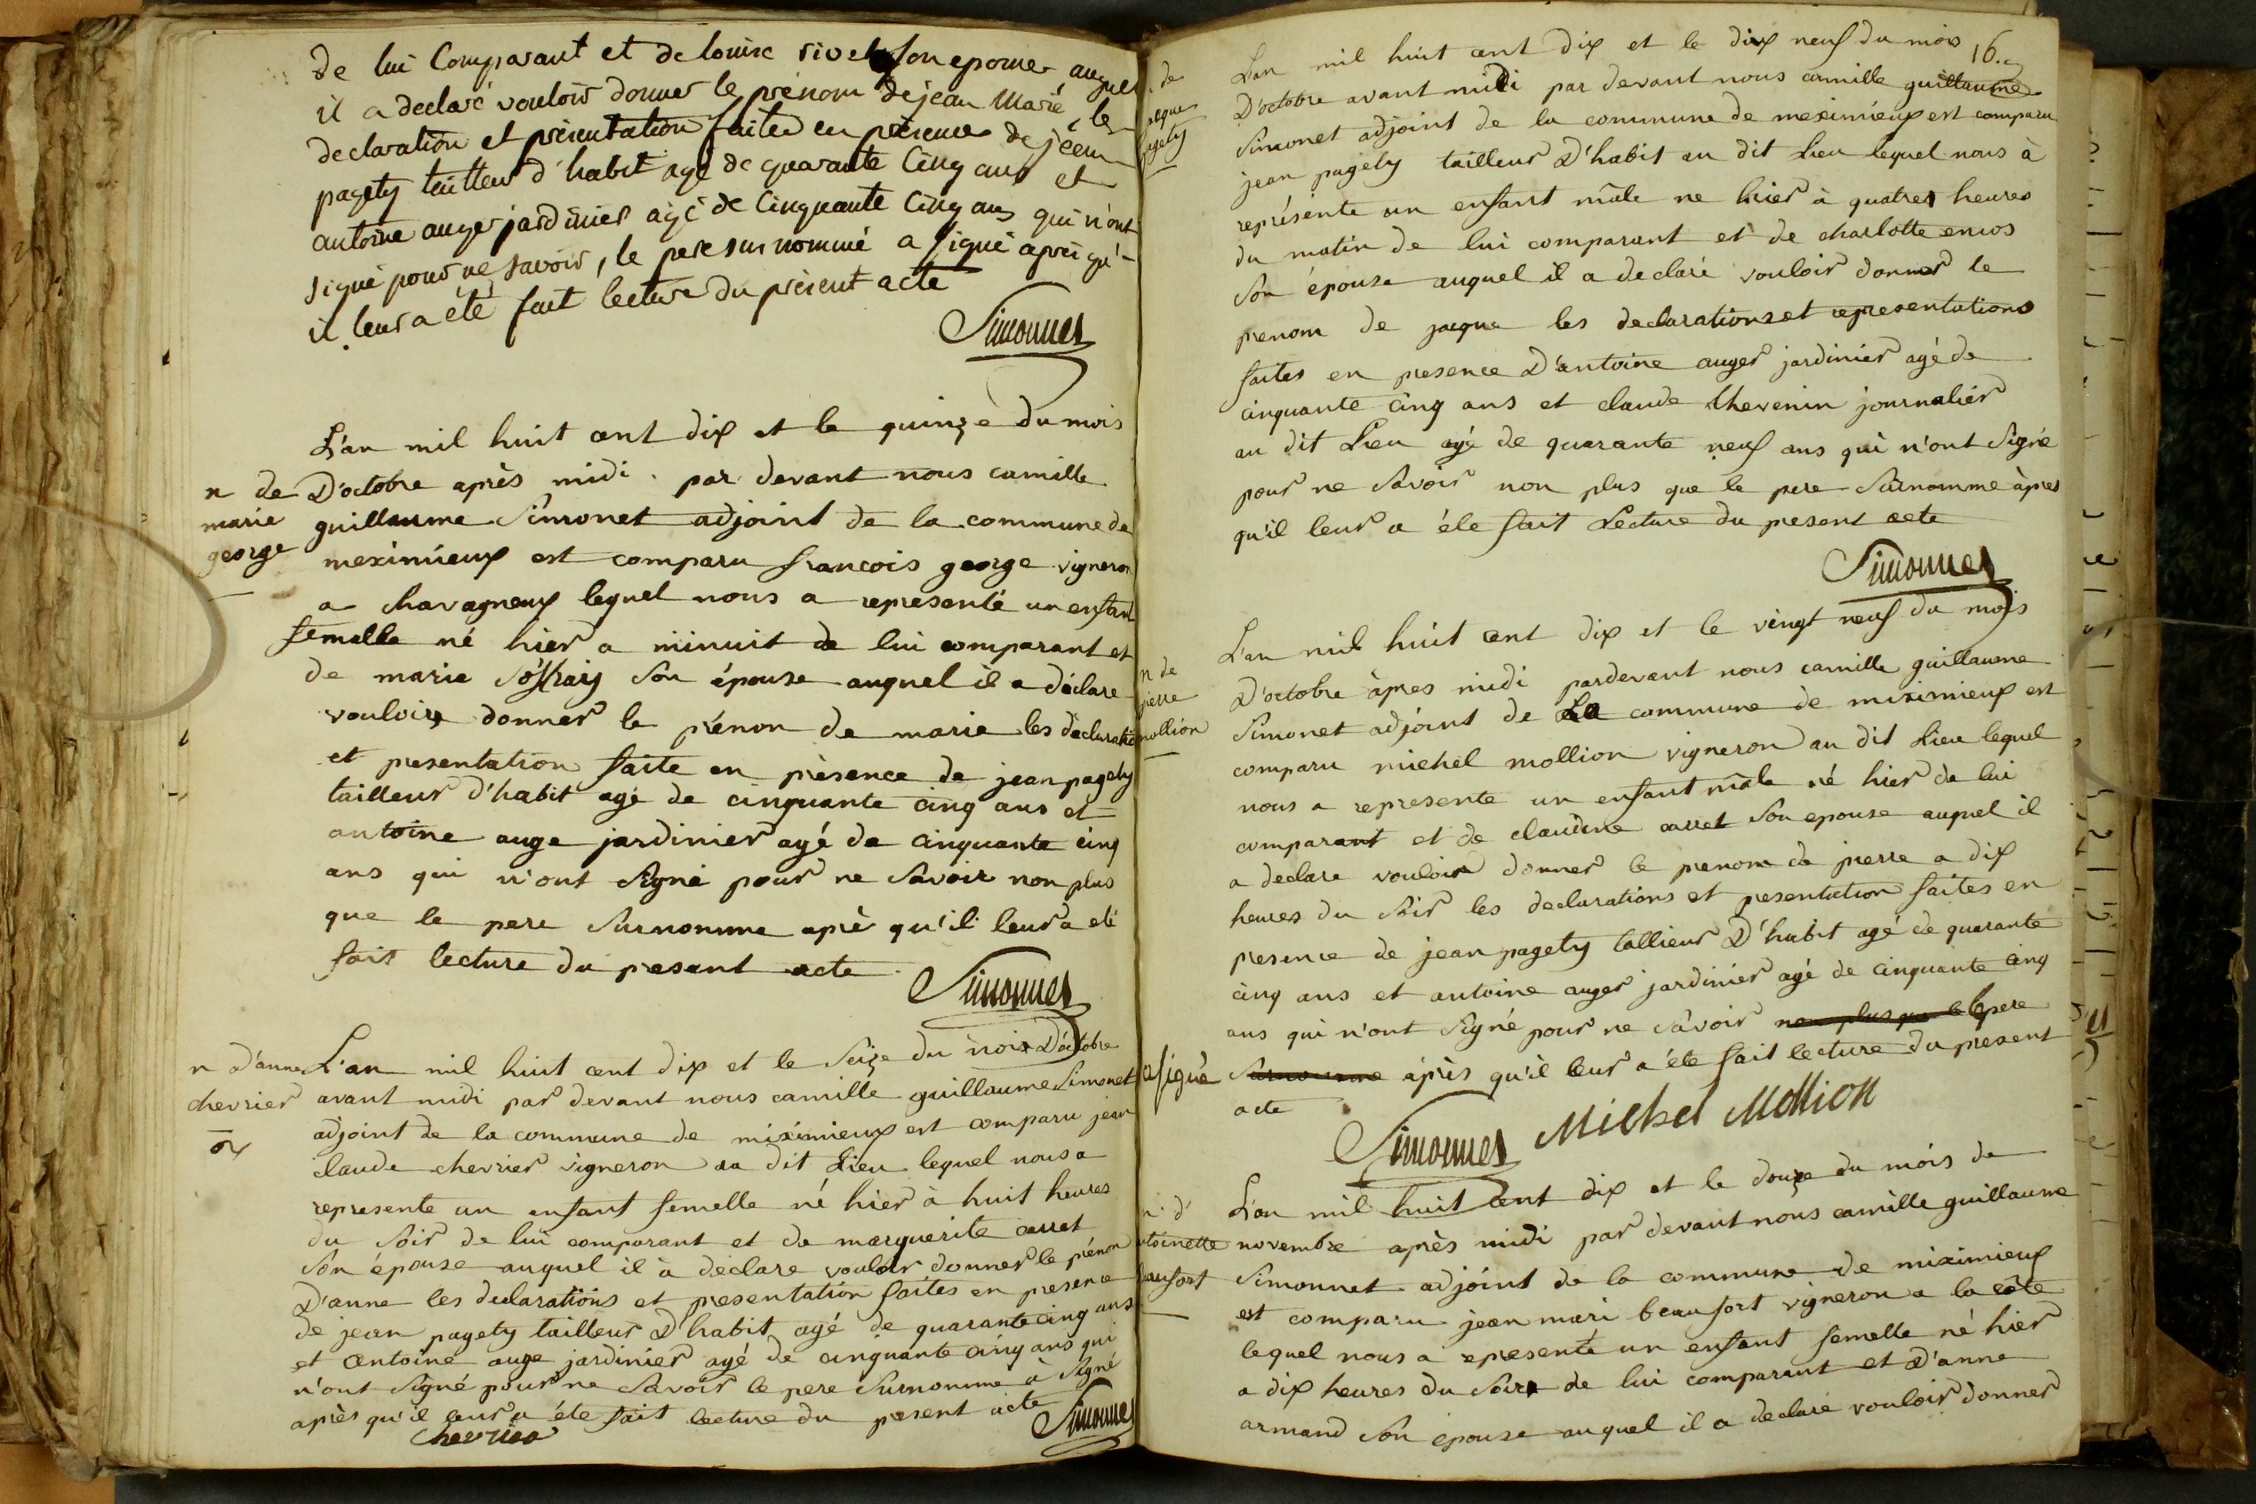 de lui Comparant et de louise rivet son epouse auquel
il a declaré vouloir donner le prénom de jean Marie, les
declaration et présentation faites en présence de jean
pagety tailleur d'habit agé de quarante Cinq ans et
antoine auger jardinier agé de Cinquante Cinq ans qui n'ont
signé pour ne savoir, le pere sus nommé a signé après qu'
il leur a été fait lecture du présent acte
Simonnet
n de
marie
george
L'an mil huit cent dix et le quinze du mois
D'octobre après midi par devant nous camille
guillaume Simonet adjoint de la commune de
meximieux est comparu francois george vigneron
a chavagneux lequel nous a representé un enfant
femelle né hier a minuit de lui comparant et
de marie son épouse auquel il a déclare
vouloir donner le prénon de marie les déclaration
et presentation faite en présence de jean pagety
tailleur d'habit agé de cinquante cinq ans et
antoine auge jardinier agé de cinquante cinq
ans qui n'ont Signé pour ne Savoir non plus
que le pere Surnomme aprè qu'il leur a eté
fait lecture du presant acte
Simonnet
n d'anne
chevrier
L'an mil huit cent dix et le Seize du mois D'octobre
avant midi par devant nous camille guillaume Simonet
adjoint de la commune de miximieux est comparu jean
claude chevrier vigneron au dit Lieu lequel nous a
represente un enfant femelle né hier à huit heures
du Soir de lui comparant et de marguerite carret
Son épouse auquel il à declare vouloir donner le prénon
D'anne les declarations et presentation faites en presence
de jean pagety tailleur D'habit agé de quarante cinq ans
et antoine auge jardinier agé de cinquante cinq ans qui
n'ont Signé pour ne Savoir le pere Surnomme à Signé
après qu'il leur a été fait lecture du present acte
chevrier
Simonnet
16.
de
jacque
pagety
L'an mil huit cent dix et le dix neuf du mois
D'octobre avant midi par devant nous camille guillaume
Simonet adjoint de la commune de meximieux est comparu
jean pagety tailleur D'habit au dit Lieu lequel nous à
représente un enfant mâle ne hier à quatres heures
du matin de lui comparant et de charlotte
Son épouse auquel il a declaré vouloir donner le
prenom de jacque les declarations et representations
faites en presence D'antoine auger jardinier agé de
cinquante cinq ans et claude thevenin journalier
au dit Lieu agé de quarante neuf ans qui n'ont Signé
pour ne Savoir non plus que le pere Surnomme àpres
qu'il leur a éte fait Lecture du present acte
Simonnet
n de
pierre
mollion
L'an mil huit cent dix et le vingt neuf du mois
D'octobre àpres midi pardevant nous camille guillaume
Simonet adjoint de La commune de miximieux est
comparu michel mollion vigneron au dit Lieu lequel
nous a represente un enfant mâle né hier de lui
comparant et de claudine carret Son epouse auquel il
a declare vouloir donner le prenom de pierre a dix
heures du Soir les declarations et presentation faites en
presence de jean pagety tallieur D'habit agé de quarante
cinq ans et antoine auger jardinier agé de cinquante cinq
ans qui n'ont Signé pour ne Savoir non plus que le pere
a signé Surnomme après qu'il leur a été fait lecture du present
acte
Simonnet Michel Mollion
n. d'
antoinette
beaufort
L'an mil huit cent dix et le douze du mois de
novembre après midi par devant nous camille guillaume
Simonnet adjoint de la commune de miximieux
est comparu jean mari beaufort vigneron a la côte
lequel nous a epresente un enfant femelle né hier
a dix heures du Soir de lui comparant et D'anne
armand Son épouse auquel il a declare vouloir donner